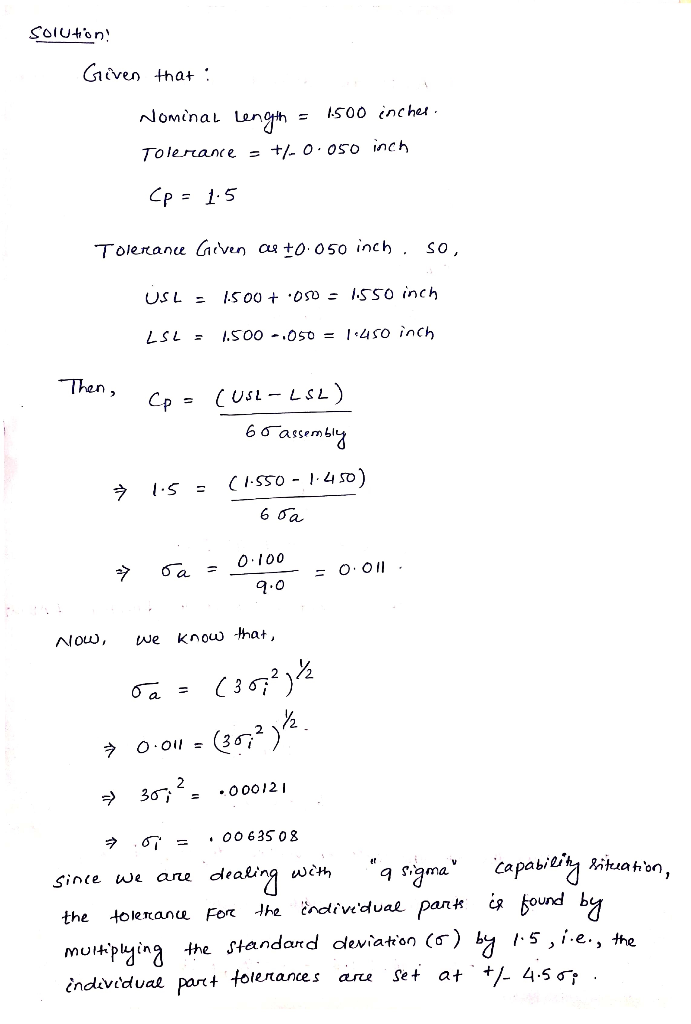 Solution:
Given that :
Nominal Length = 1.500 inches.
Tolerance = +/- 0.050 inch
Cp = 1.5
Tolerance Given as ±0.050 inch. So,
USL = 1.500 + .050 = 1.550 inch
LSL = 1.500 - .050 = 1.450 inch
Then, Cp = (USL - LSL) / 6σ assembly
⇒ 1.5 = (1.550 - 1.450) / 6σa
⇒ σa = 0.100 / 9.0 = 0.011.
Now, we know that,
σa = (3σi²)^½
⇒ 0.011 = (3σi²)^½.
⇒ 3σi² = .000121
⇒ σi = .0063508
Since we are dealing with "9 sigma" capability situation,
the tolerance For the individual parts is found by
multiplying the standard deviation (σ) by 1.5, i.e., the
individual part tolerances are set at +/- 4.5σi.